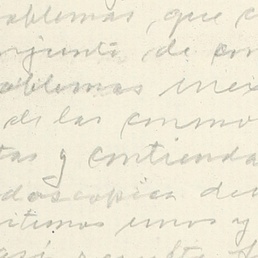 oblemas, que c
njunto de con
oblemas mex
de las conmo
tas y contienda
doscopica de
itemos unos y